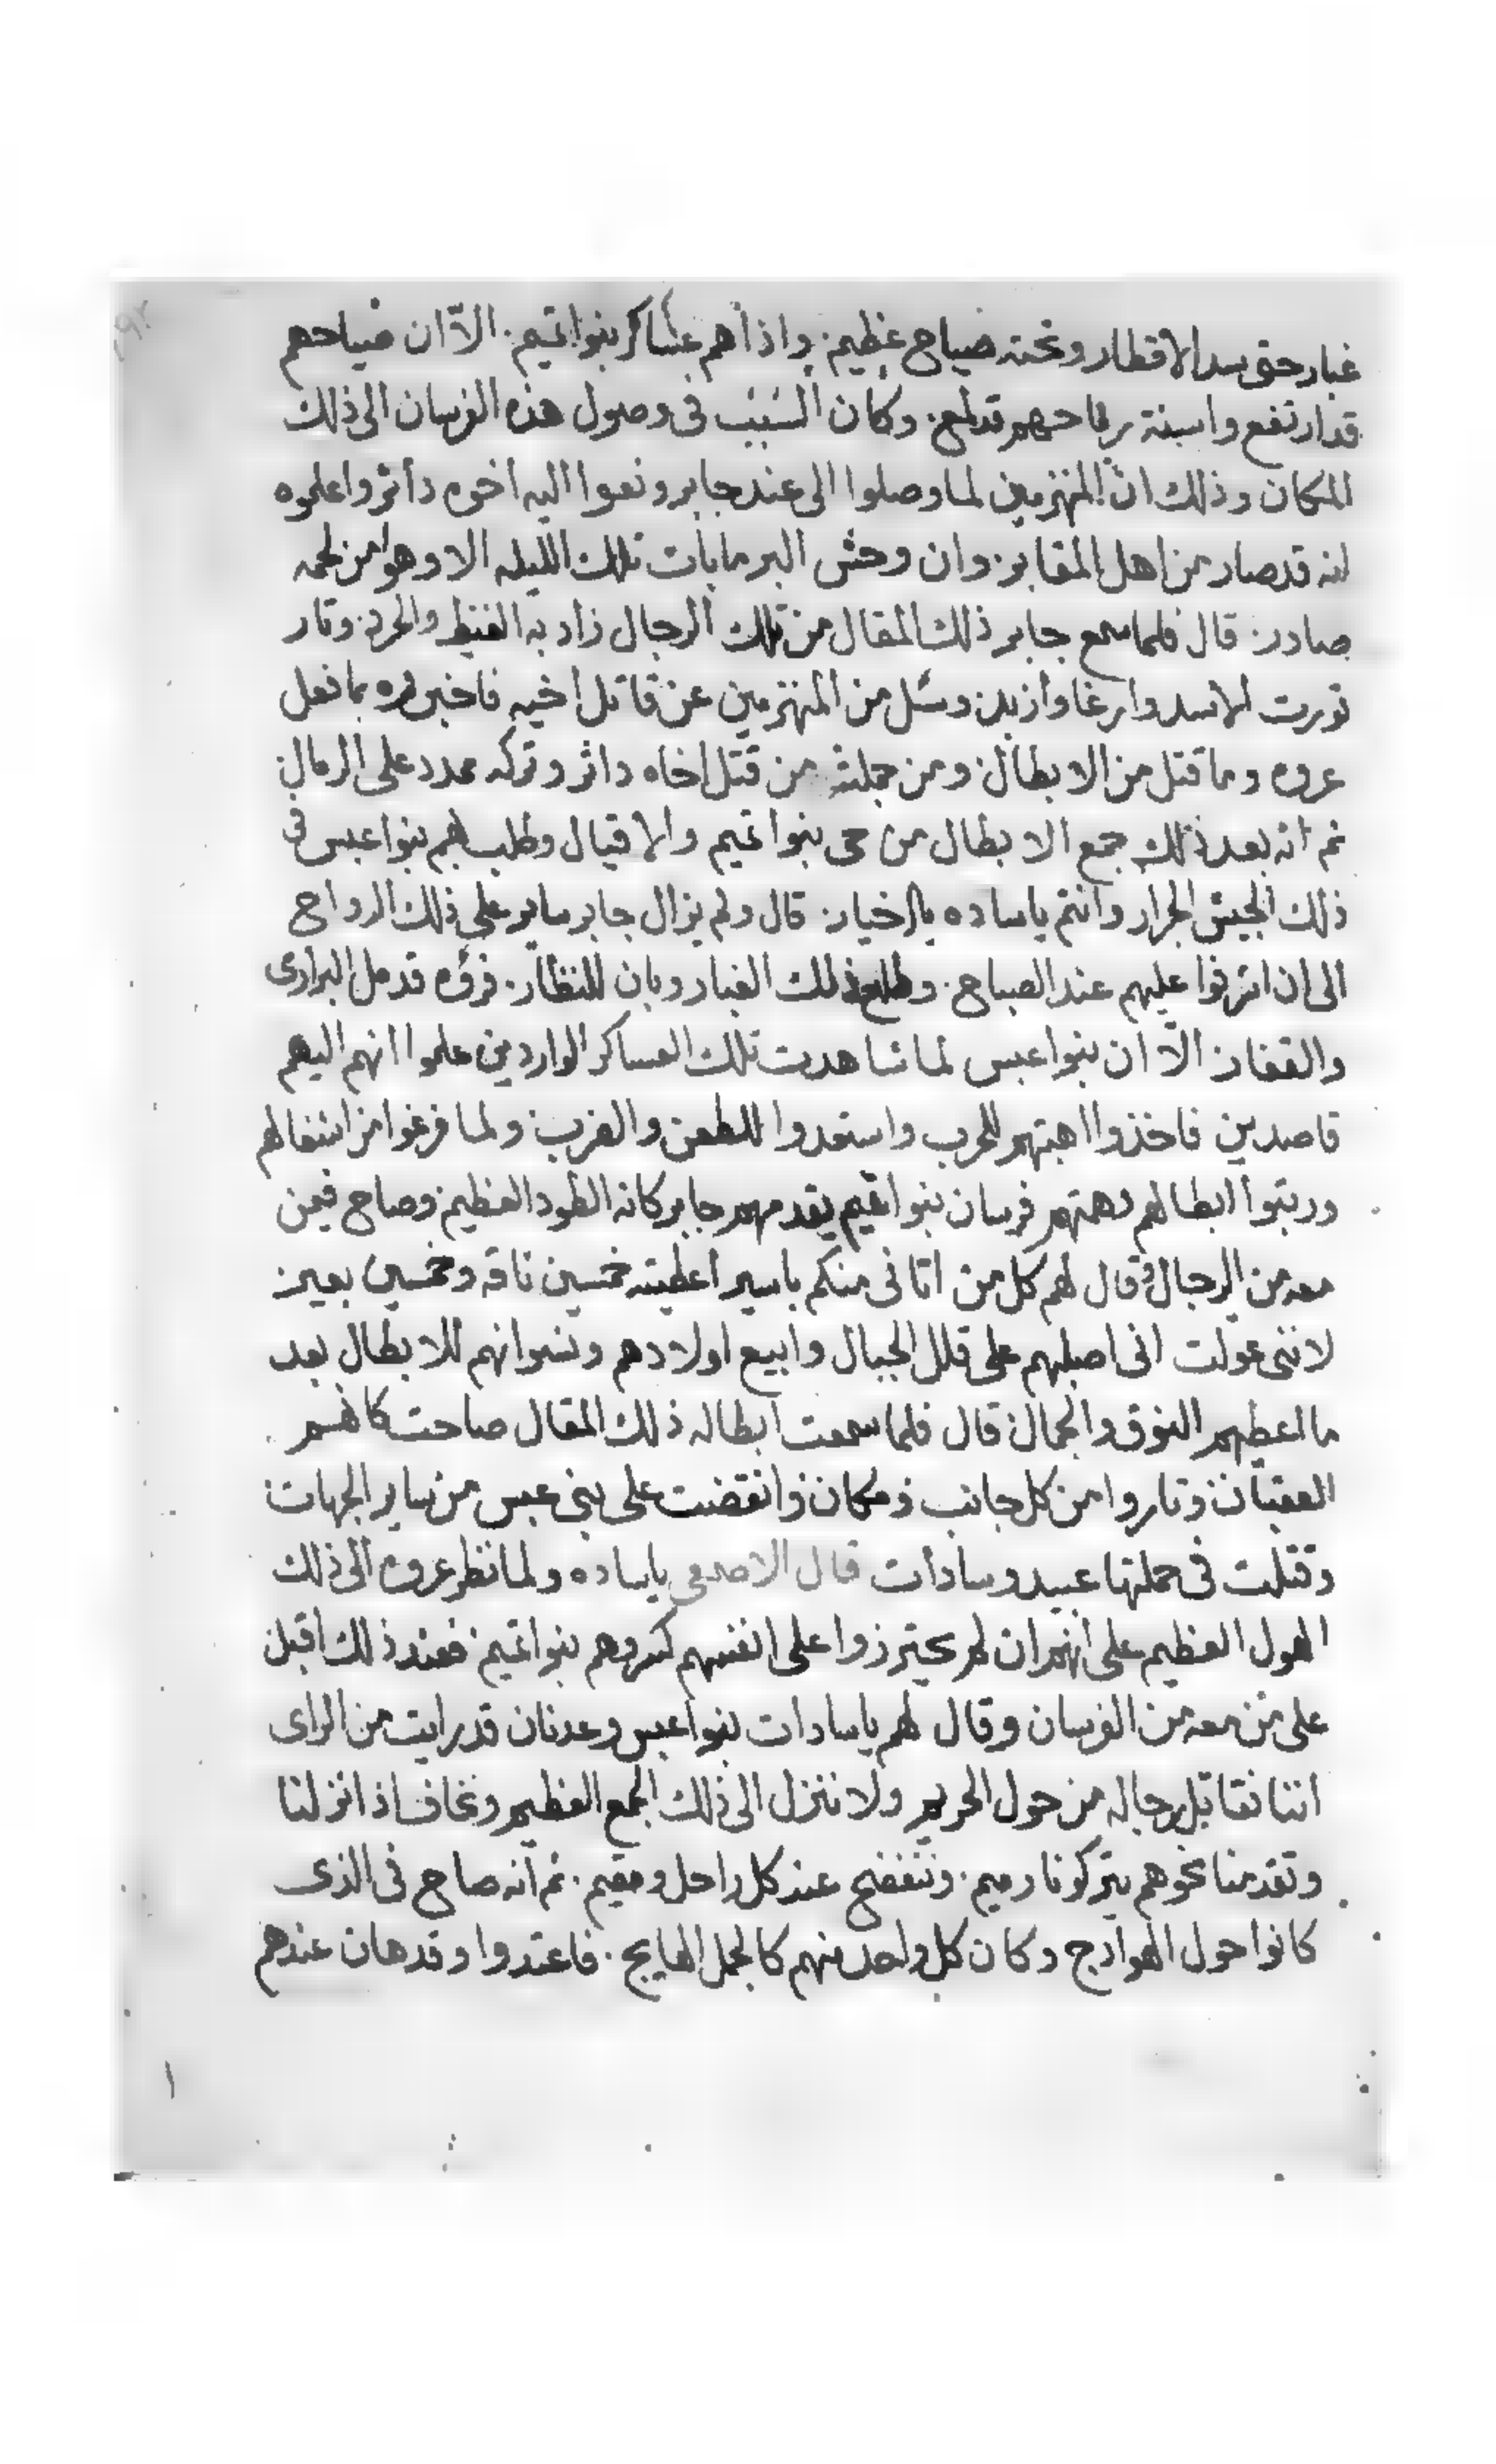 غبار حتى سد الاقطار وتحته صياح عظيم. واذا هم عساكر بنوا تميم. الاّ ان صياحهم
قد ارتفع واسنة رماحهم قد لمع. وكان السبب فى وصول هذه الفرسان الى ذلك
المكان وذلك ان المنهزمين لما وصلوا الى عند جابر ونعوا اليه أخوه دأثر واعلموه
انه قد صار من اهل المقابر. وان وحش البر ما بات تلك الليله الا وهو من لحمه
صادر. قال فلما سمع جابر ذلك المقال من تلك الرجال زاد به الغيظ والحرد. وثار
ثورت الاسد وارغا وأزبد. وسئل من المنهزمين عن قاتل أخيه فاخبروه بما فعل
عروه وما قتل من الابطال. ومن جملته من قتل اخاه داثر وتركه ممدد على الرمال.
ثم انه بعد ذلك جمع الابطال من حى بنوا تميم والاقيال وطلب بهم بنوا عبس فى
ذلك الجيش الجرار وانتم ياساده بالاخيار. قال ولم يزال جابر ساير على ذلك الرواح
الى ان اشرفوا عليهم عند الصباح. وطلع ذلك الغبار وبان للنظار. فرؤه قد مل البرارى
والقفار. الاّ ان بنوا عبس لما شاهدت تلك العساكر الواردين علموا انهم اليهم
قاصدين فاخذوا اهبتهم للحرب واستعدوا للطعن والضرب. ولما فرغوا من اشغالهم
ورتبوا ابطالهم دهمتهم فرسان بنوا تميم يقدمهم جابر كانه الطود العظيم. وصاح فيمن
معه من الرجال وقال لهم كل من اتانى منكم باسير أعطيته خمسين ناقه وخمسين بعير.
لاننى عولت انى اصلبهم على قلل الجبال وابيع اولادهم ونسوانهم للابطال بعد
ما اعطيهم النوق والجمال. قال فلما سمعت ابطاله ذلك المقال صاحت كانهم
العقبان. وثاروا من كل جانب ومكان. وانقضت على بنى عبس من ساير الجهات.
وقتلت فى حملتها عبيد وسادأت قال الاصمعى ياساده ولما نظر عروه الى ذلك
الهول العظيم على انهم ان لم يحترزوا على انفسهم كسروهم بنوا تميم. فعند ذلك اقبل
على من معه من الفرسان وقال لهم ياسادات بنوا عبس وعدنان قد رايت من الراى
اننا نقاتل رجاله من حول الحريم ولا ننزل الى ذلك الجمع العظيم ونخاف اذا نزلنا
وتقدمنا نحوهم يتركونا رميم. وننفضح عند كل راحل ومقيم. ثم أنه صاح فى الذى
كانوا حول الهوادج وكان كل واحد منهم كالجمل الهايج. فاعتدوا وقد هان عندهم